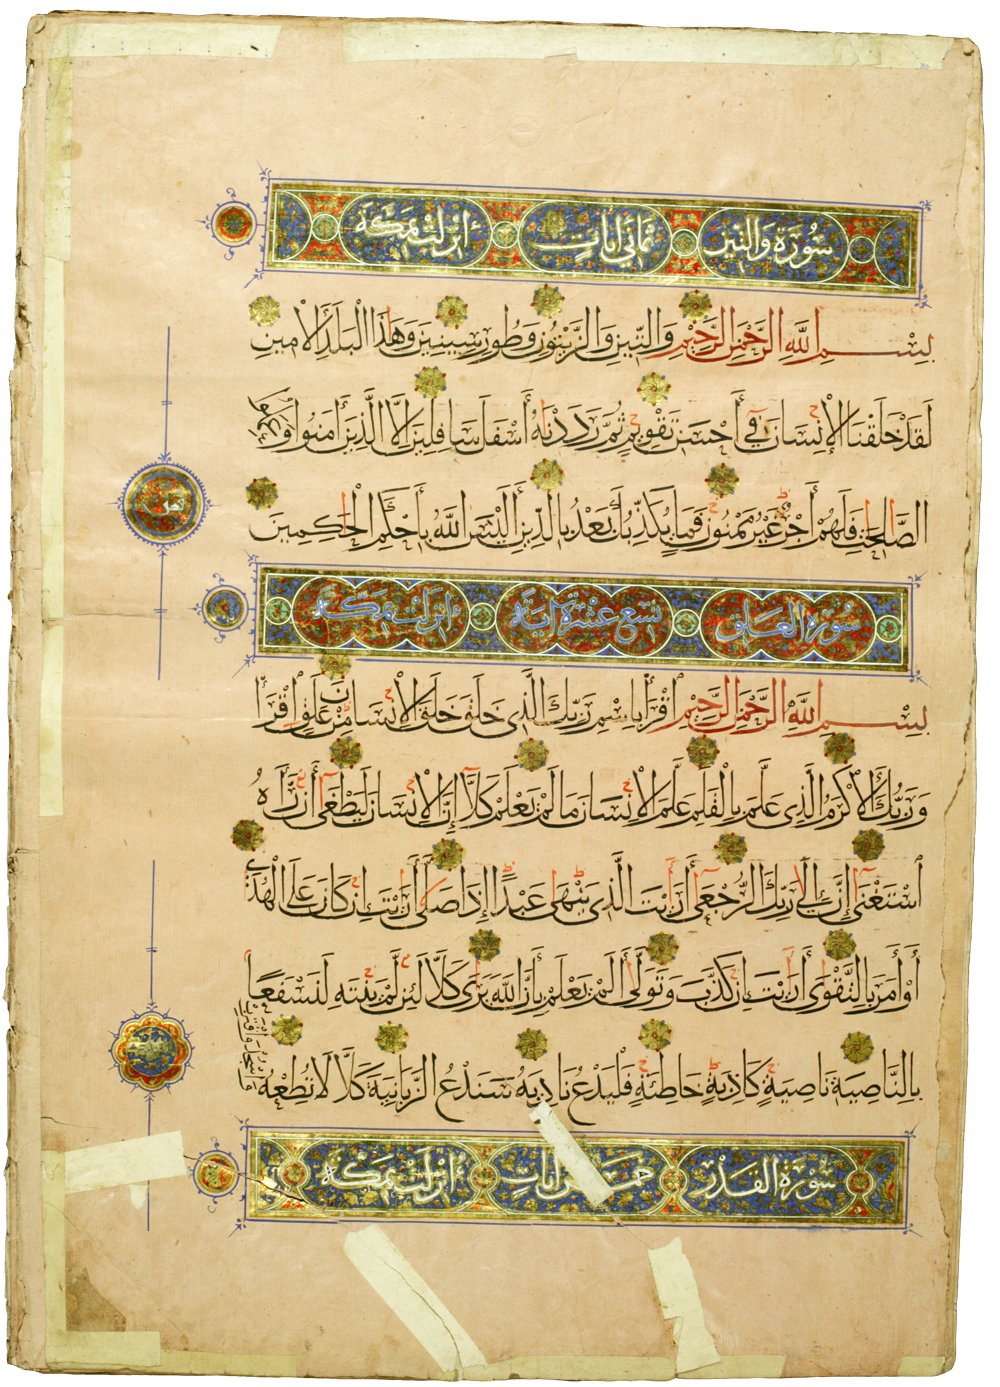 سُورَة وَالتين ثَمَاني اٰيَاتٍ اُنزلَتْ بمَكّة
بِسْمِ اللّٰهِ الرَّحْمٰنِ الرَّحِيْمِ وَالتِّيْنِ وَالزَّيْتُوْنِ وَطُورِ سِينِينَ وَهَاذَا الْبَلَدِ الْاَمِينِ
لَقَدْ خَلَقْنَا الْإِنْسَانَ فِي أَحْسَنِ تَقْوِيمٍ ثُمَّ رَدَدْنَاهُ أَسْفَلَ سَافِلِينَ إِلَّا الَّذِينَ آمَنُوا وَعَمِلُوا
الصَّالِحَاتِ فَلَهُمْ أَجْرٌ غَيْرُ مَمْنُونٍ فَمَا يُكَذِّبُكَ بَعْدُ بِالدِّينِ أَلَيْسَ اللَّهُ بِأَحْكَمِ الْحَاكِمِينَ
سُورَة العَلق تسع عشرة اٰيَة اُنزلَتْ بمَكّة
بِسْمِ اللّٰهِ الرَّحْمٰنِ الرَّحِيْمِ اقْرَأْ بِاسْمِ رَبِّكَ الَّذِي خَلَقَ خَلَقَ الْإِنْسَانَ مِنْ عَلَقٍ اقْرَأْ
وَرَبُّكَ الْأَكْرَمُ الَّذِي عَلَّمَ بِالْقَلَمِ عَلَّمَ الْإِنْسَانَ مَا لَمْ يَعْلَمْ كَلَّا إِنَّ الْإِنْسَانَ لَيَطْغَى أَنْ رَآهُ
اسْتَغْنَى إِنَّ إِلَى رَبِّكَ الرُّجْعَى أَرَأَيْتَ الَّذِي يَنْهَى عَبْدًا إِذَا صَلَّى أَرَأَيْتَ إِنْ كَانَ عَلَى الْهُدَى
أَوْ أَمَرَ بِالتَّقْوَى أَرَأَيْتَ إِنْ كَذَّبَ وَتَوَلَّى أَلَمْ يَعْلَمْ بِأَنَّ اللَّهَ يَرَى كَلَّا لَئِنْ لَمْ يَنْتَهِ لَنَسْفَعًا
بِالنَّاصِيَةِ نَاصِيَةٍ كَاذِبَةٍ خَاطِئَةٍ فَلْيَدْعُ نَادِيَهُ سَنَدْعُ الزَّبَانِيَةَ كَلَّا لَا تُطِعْهُ
وَاسْجُدْ وَاقْتَرِبْ
سُورَة القَدْر خمس اٰيَاتٍ اُنزلَتْ بمَكّة